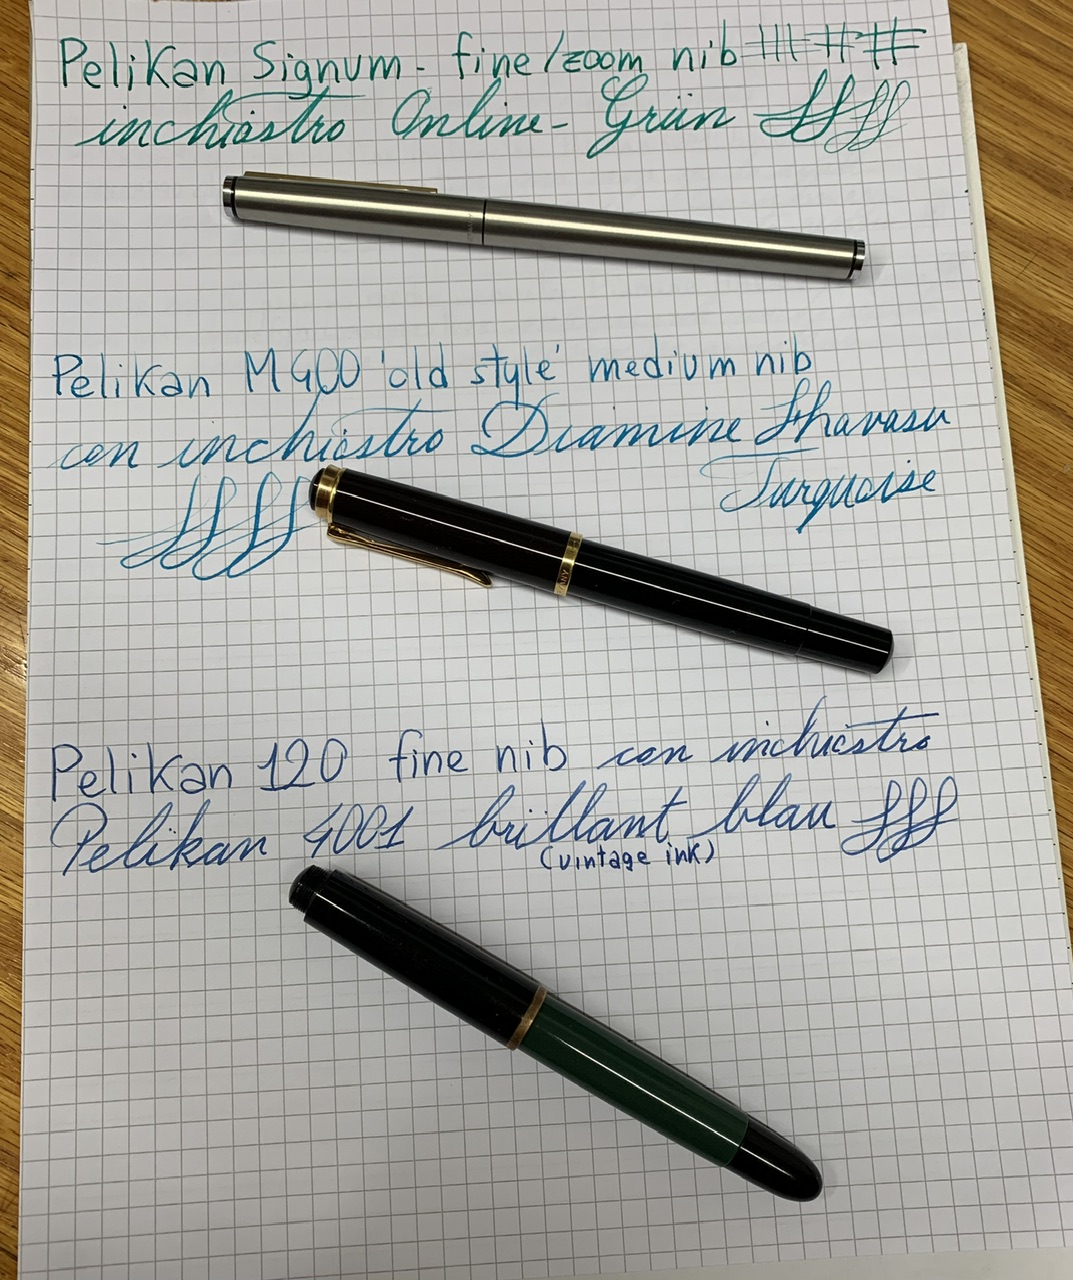 Pelikan Signum - fine/zoom nib
inchiostro Online - Grün
Pelikan M400 'old style' medium nib
con inchiostro Diamine Havasu
Turquoise
Pelikan 120 fine nib con inchiostro
Pelikan 4001 brillant blau
(vintage ink)